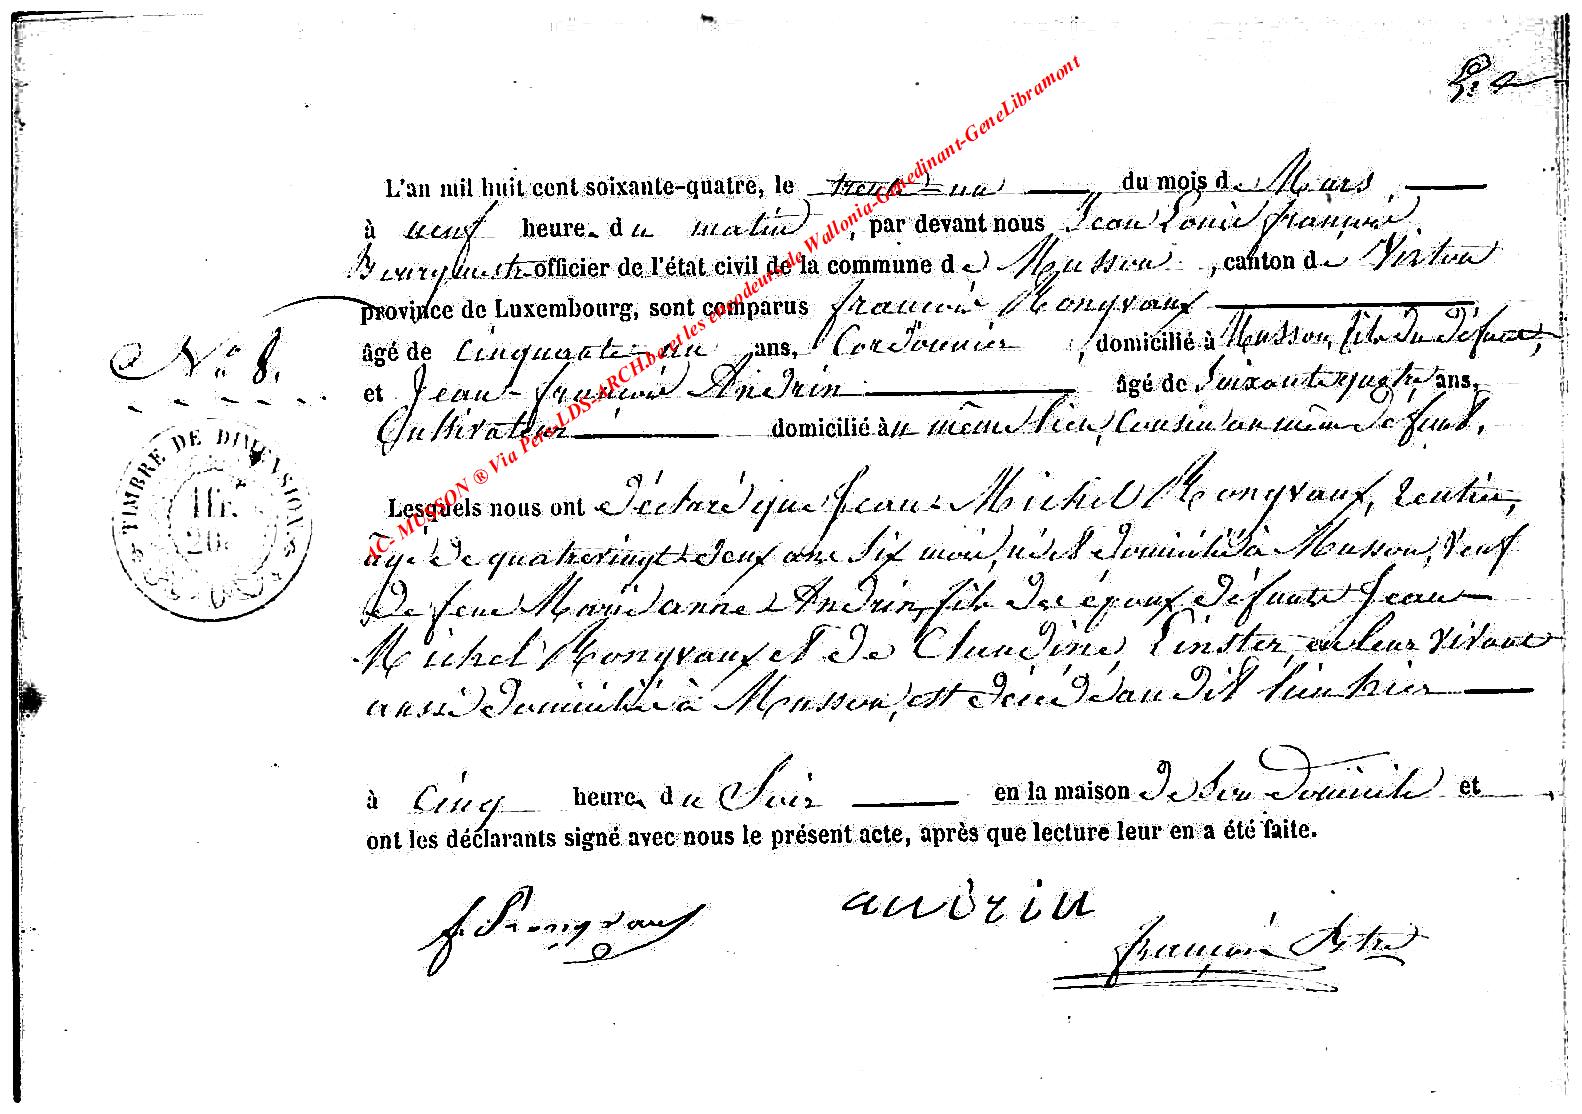 L'an mil huit cent soixante-quatre, le trente-un du mois de Mars
à neuf heures du matin, par devant nous Jean Louis françois
Bourgmestre officier de l'état civil de la commune de Musson, canton de Virton
province de Luxembourg, sont comparus françois Rongvaux
âgé de cinquante-un ans, Cordonnier, domicilié à Musson, fils du défunt,
et Jean-françois Andrin âgé de Soixante quatre ans,
Cultivateur domicilié au même lieu, Cousin au même défunt.
Lesquels nous ont déclaré que Jean-Michel Rongvaux, rentier,
âgé de quatrevingt-deux ans Six mois, né et domicilié à Musson, Veuf
de feue Marie anne Andrin, fils des époux défunts Jean
Michel Rongvaux et de Claudine Linster, en leur vivant
aussi domiciliés à Musson, est décédé au dit lieu hier
à Cinq heures du Soir en la maison de Son domicile et
ont les déclarants signé avec nous le présent acte, après que lecture leur en a été faite.
N° 8.
TIMBRE DE DIMENSIONS
1 fr.
20
f. Rongvaux
andrin
françois
AC- MUSSON ® Via Pere-LDS-ARCH.be et les encodeurs de Wallonia-Genedinant-GeneLibramont